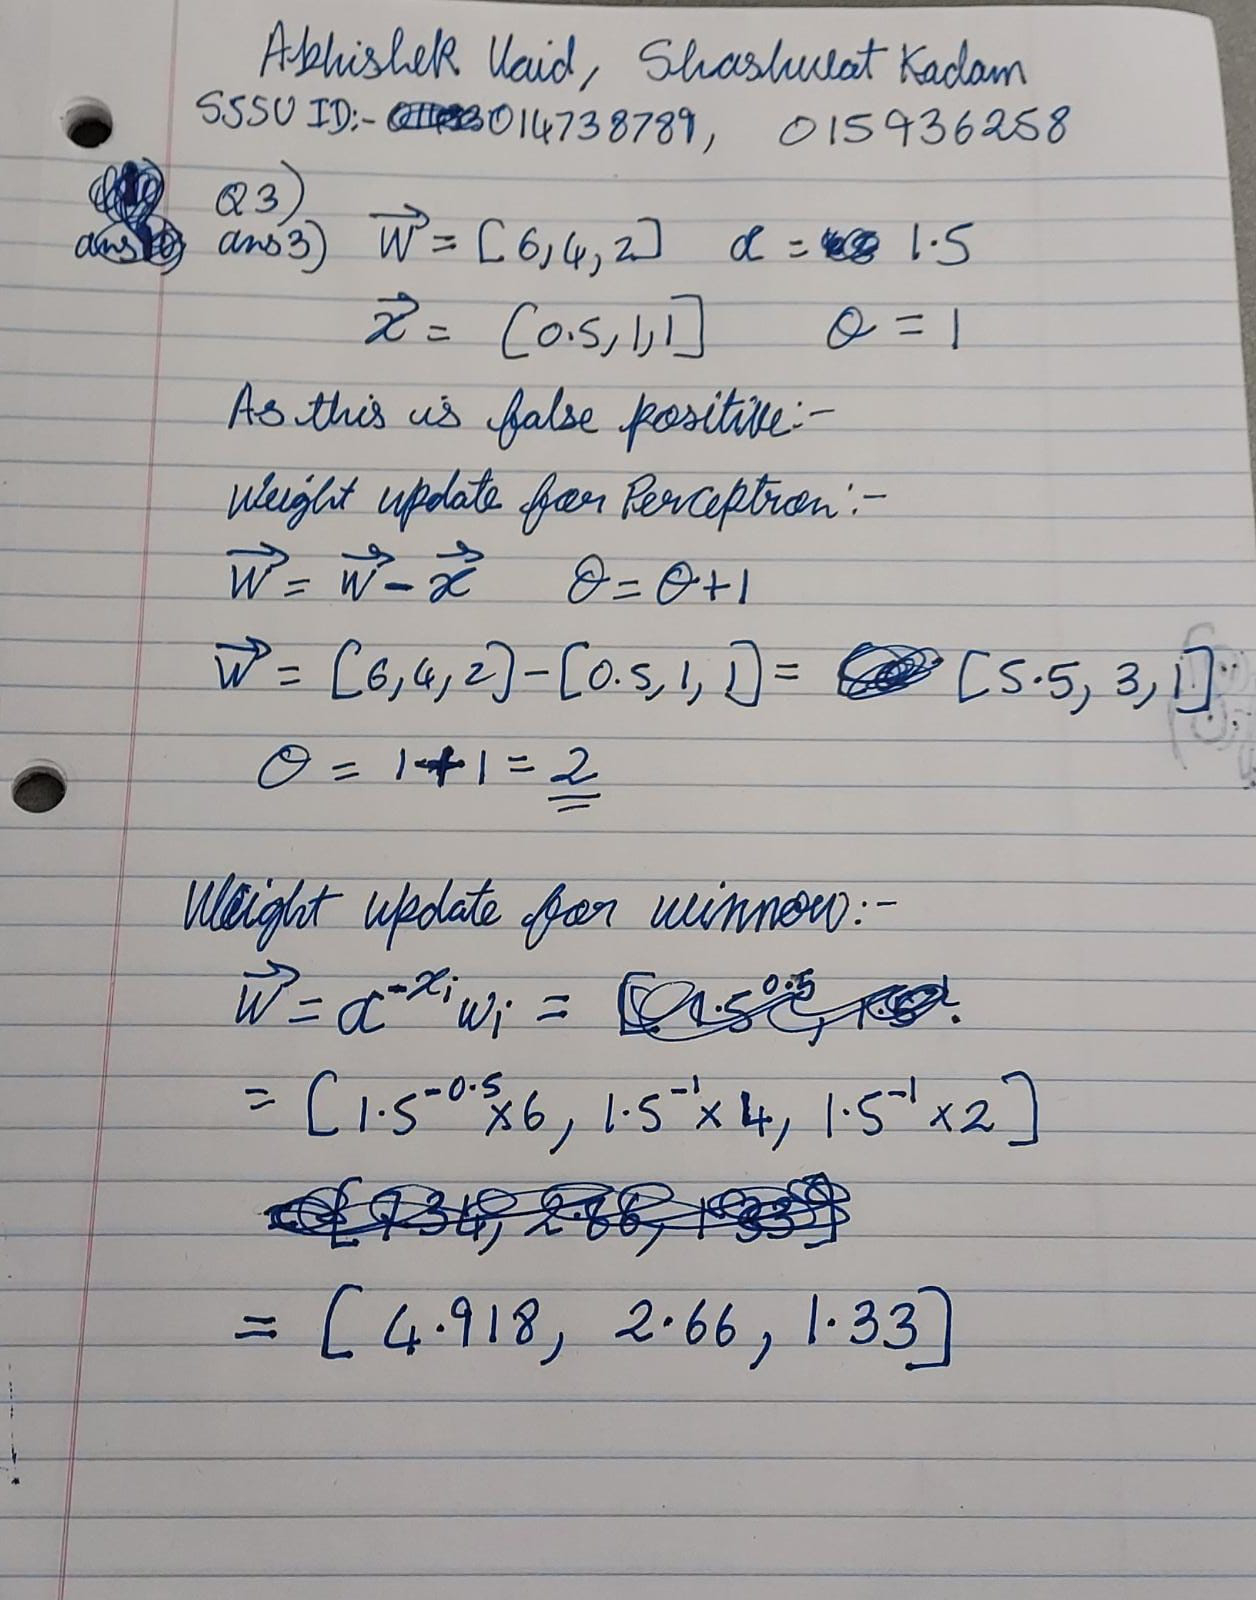 Abhishek Vaid, Shashwat Kadam
SJSU ID:- 014738789, 015936258
Q3)
ans3) W⃗ = [6,4,2] α = 1.5
x⃗ = [0.5,1,1] θ = 1
As this is false positive:-
Weight update for Perceptron:-
W⃗ = W⃗ - x⃗ θ = θ+1
W⃗ = [6,4,2]-[0.5,1,1] = [5.5, 3, 1]
θ = 1+1 = 2
Weight update for winnow:-
W⃗ = α^-xᵢ wᵢ =
= [1.5^-0.5 × 6, 1.5^-1 × 4, 1.5^-1 × 2]
= [4.918, 2.66, 1.33]